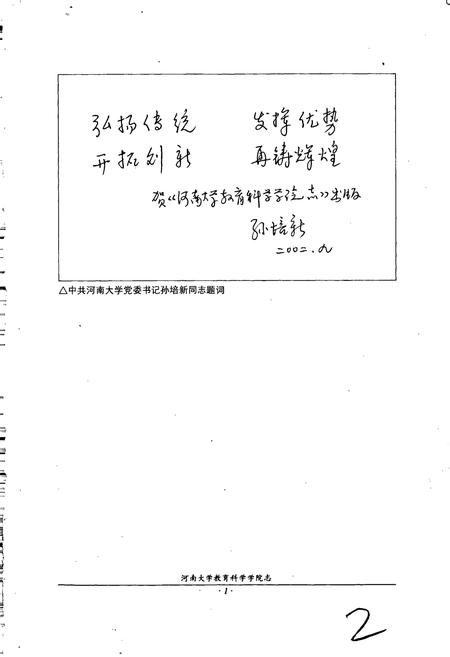 弘扬传统 发挥优势
开拓创新 再铸辉煌
贺《河南大学教育科学学院志》出版
孙培新
二〇〇二.九
△中共河南大学党委书记孙培新同志题词
河南大学教育科学学院志
·1·
2